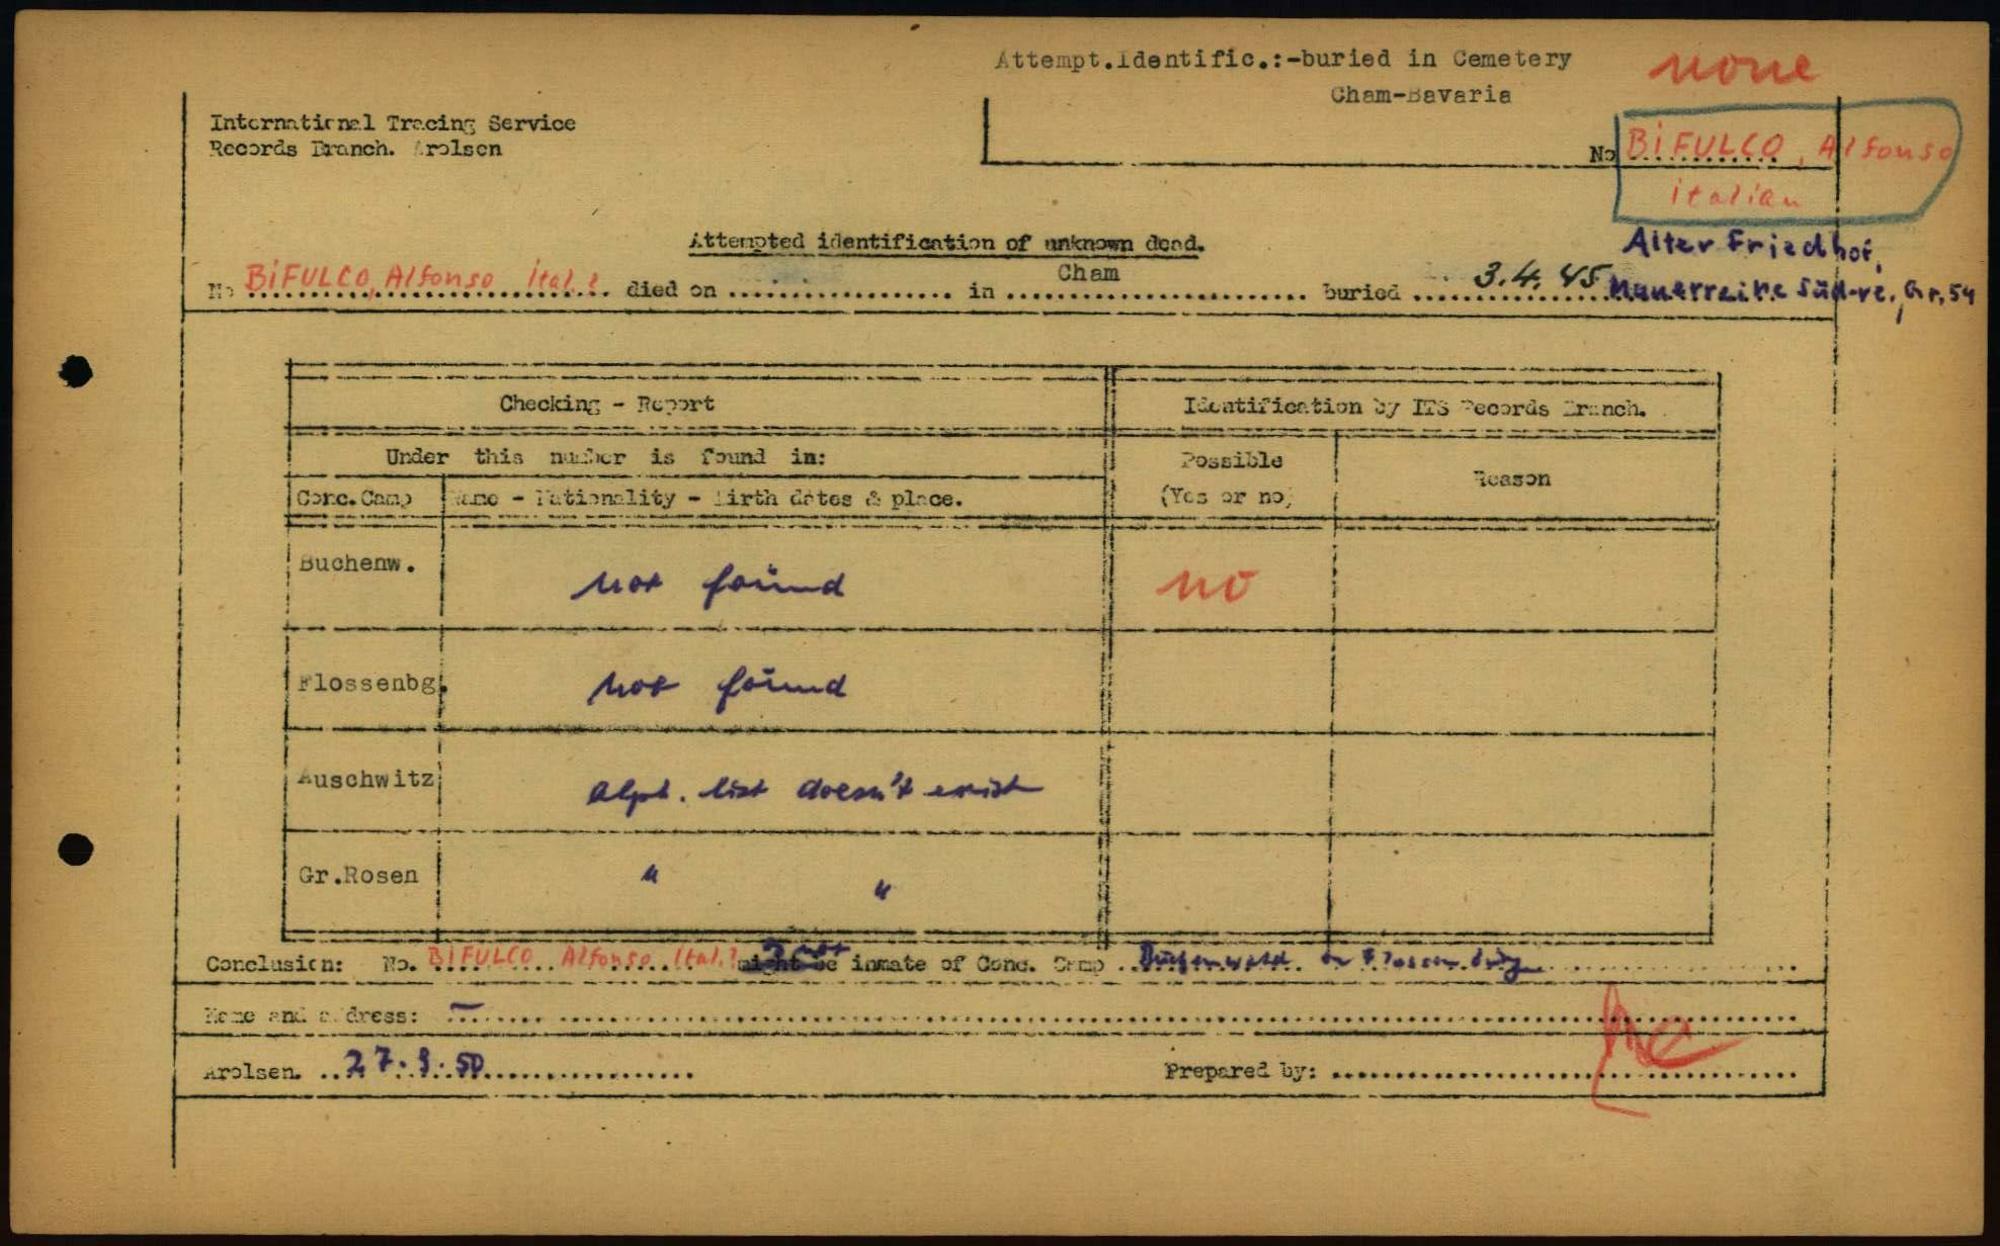 Attempt.Identific.:-buried in Cemetery
Cham-Bavaria
none
International Tracing Service
Records Branch. Arolsen
No BiFULCO, Alfonso
italian
Attempted identification of unknown dead.
Alter Friedhof,
No BiFULCO, Alfonso Ital. ? died on .................... in Cham buried 3.4.45 Mauerreihe Süd-re, Gr.54
Checking - Report
Identification by ITS Records Branch.
Under this number is found in:
Possible
(Yes or no)
Reason
Conc.Camp
Name - Nationality - Birth dates & place.
Buchenw. not found no
Flossenbg. not found
Auschwitz alph. list doesn't exist
Gr.Rosen " "
Conclusion: No. BIFULCO Alfonso Ital.? not inmate of Conc. Camp Buchenwald or Flossenbürg
Name and address: —
Arolsen. 27.9.50
Prepared by: